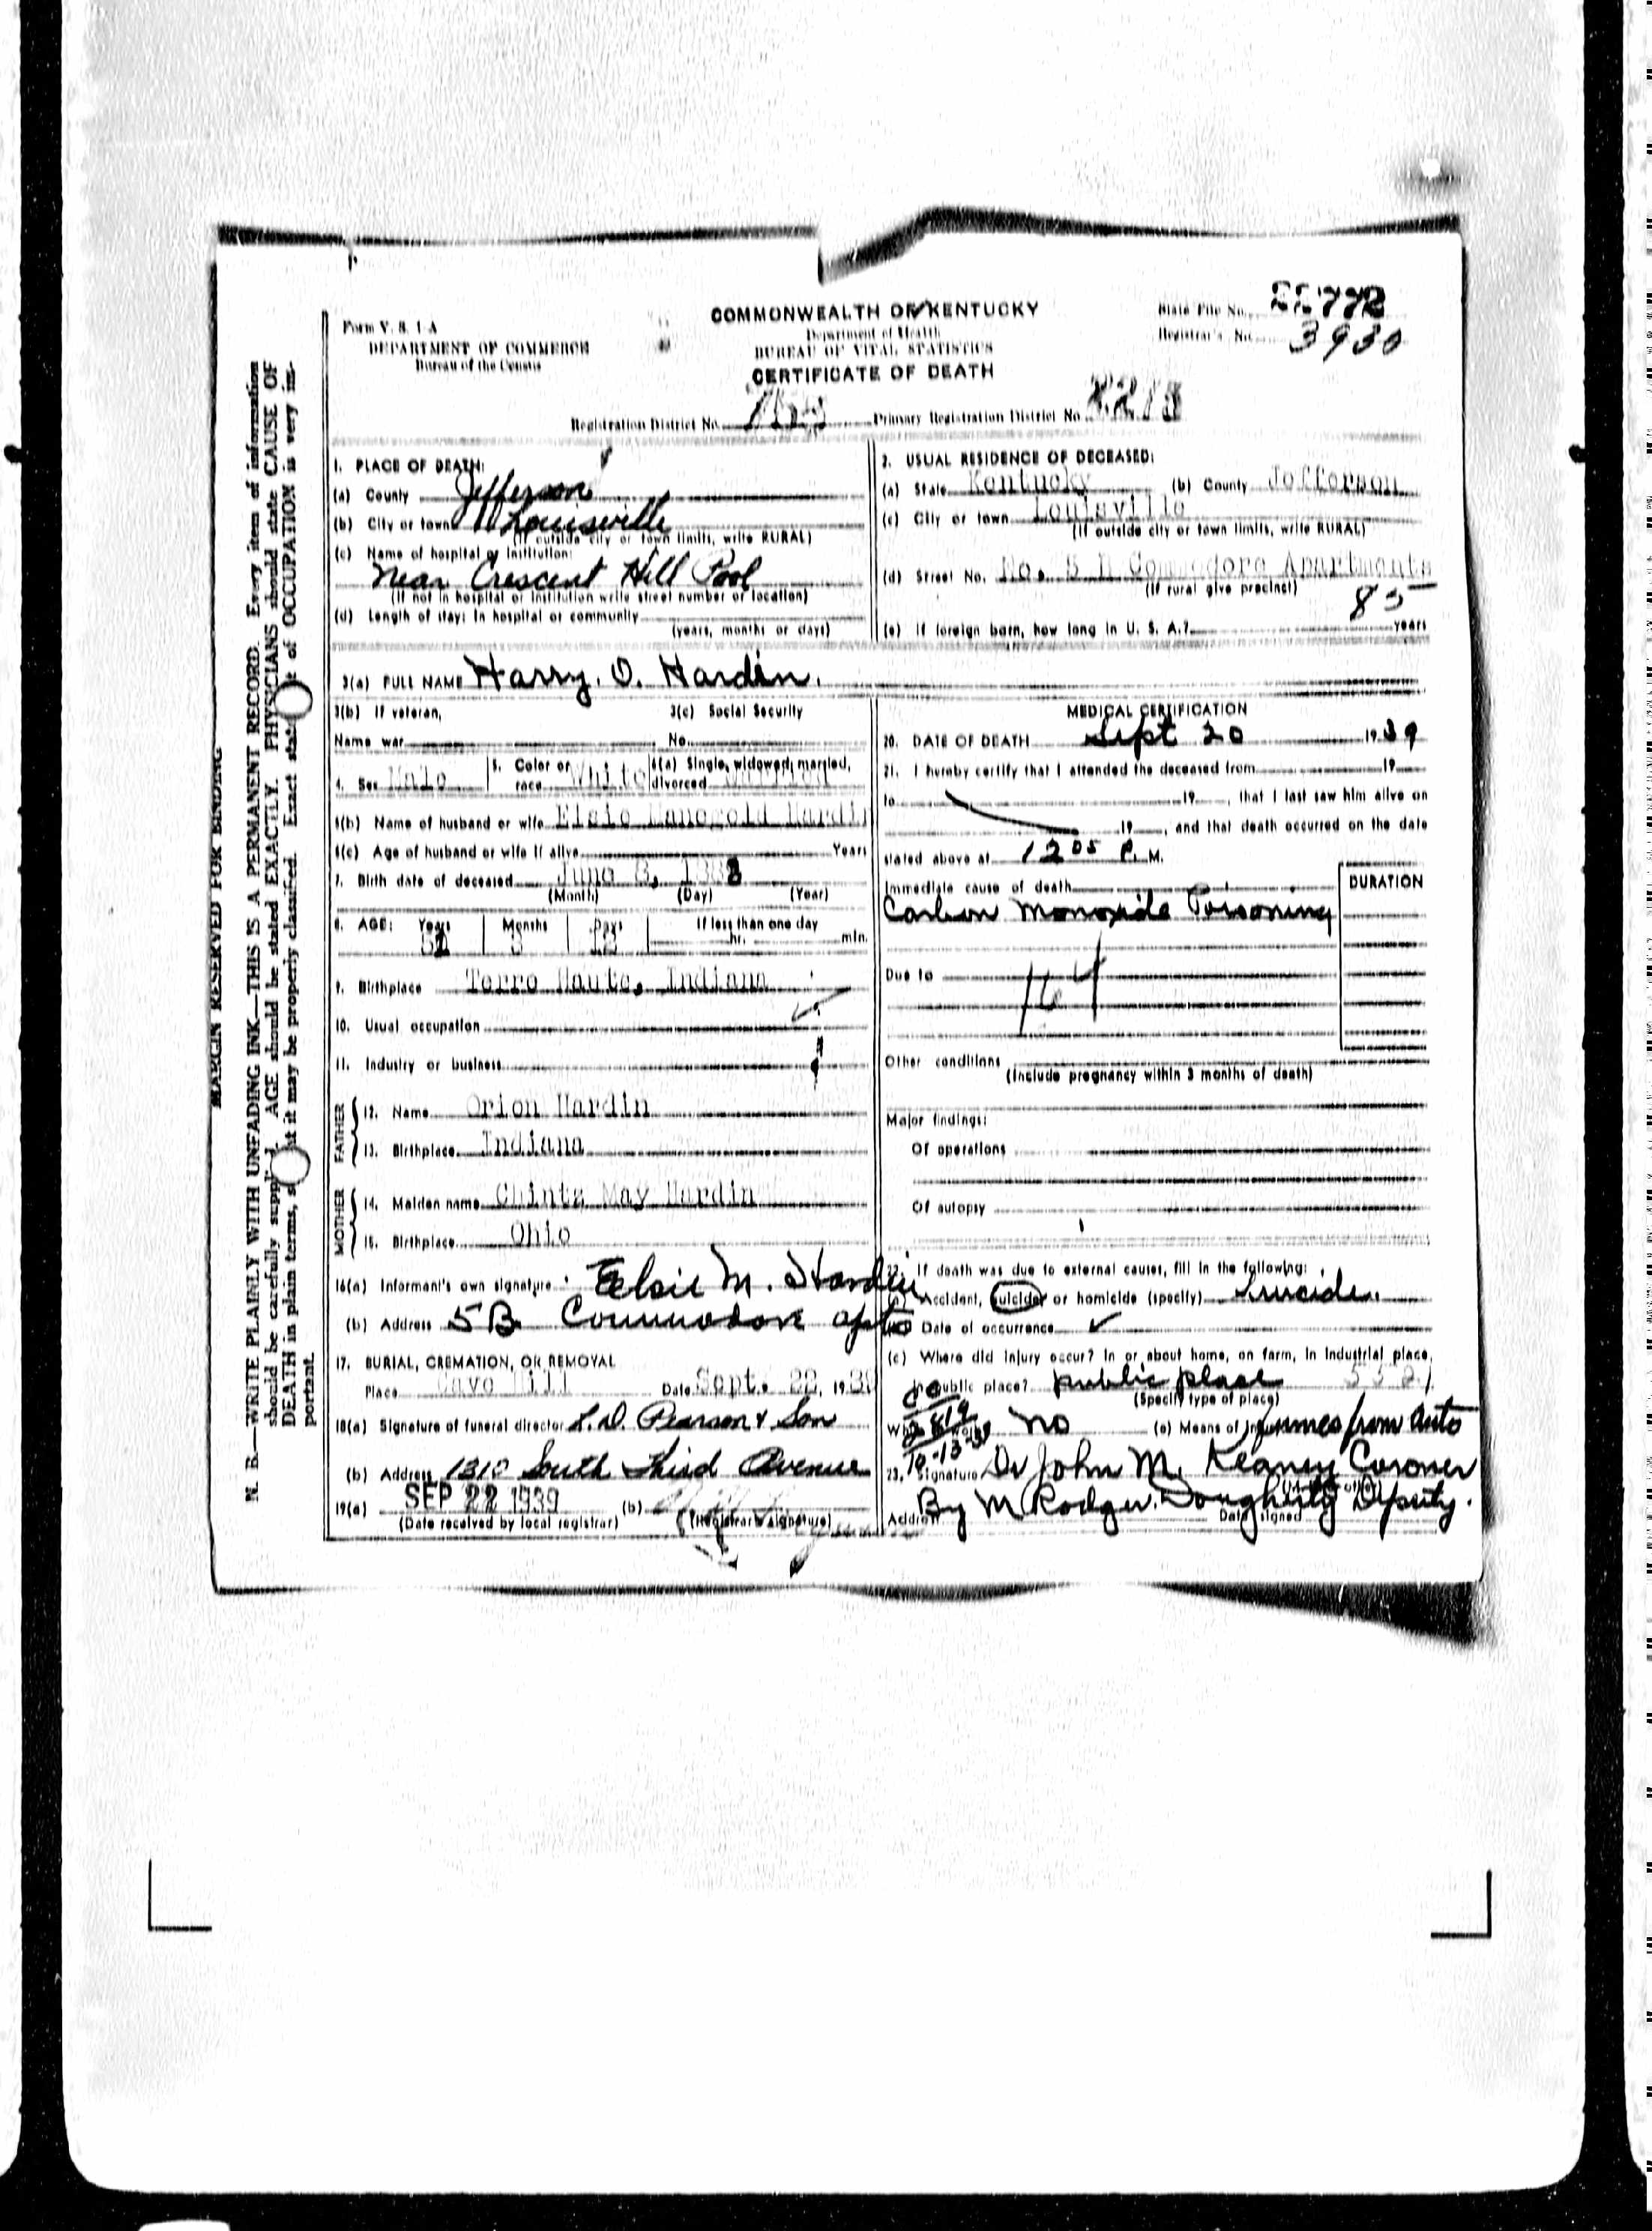 MARGIN RESERVED FOR BINDING
N. B.—WRITE PLAINLY WITH UNFADING INK—THIS IS A PERMANENT RECORD. Every item of information
should be carefully supplied. AGE should be stated EXACTLY. PHYSICIANS should state CAUSE OF
DEATH in plain terms, so that it may be properly classified. Exact statement of OCCUPATION is very im-
portant.
Form V. S. 1-A
DEPARTMENT OF COMMERCE
Bureau of the Census
COMMONWEALTH OF KENTUCKY
Department of Health
BUREAU OF VITAL STATISTICS
CERTIFICATE OF DEATH
State File No. 22772
Registrar's No. 3930
Registration District No. Primary Registration District No.
1. PLACE OF DEATH:
(a) County Jefferson
(b) City or town Louisville
(If outside city or town limits, write RURAL)
(c) Name of hospital or institution:
Near Crescent Hill Pool
(If not in hospital or institution write street number or location)
(d) Length of stay: In hospital or community
(years, months or days)
2. USUAL RESIDENCE OF DECEASED:
(a) State Kentucky (b) County Jefferson
(c) City or town Louisville
(If outside city or town limits, write RURAL)
(d) Street No. No. 5 B Commodore Apartments
(If rural give precinct)
85
(e) If foreign born, how long in U. S. A.? years
3(a) FULL NAME Harry. O. Hardin.
3(b) If veteran, 3(c) Social Security
Name war No.
4. Sex Male 5. Color or race White 6(a) Single, widowed, married, divorced Married
6(b) Name of husband or wife Elsie Hardin
6(c) Age of husband or wife if alive Years
7. Birth date of deceased June 8, 1888
(Month) (Day) (Year)
8. AGE: Years Months Days If less than one day
51 3 12 hr. min.
9. Birthplace Terre Haute, Indiana
10. Usual occupation
11. Industry or business
FATHER
12. Name Orion Hardin
13. Birthplace Indiana
MOTHER
14. Maiden name May Hardin
15. Birthplace Ohio
16(a) Informant's own signature Elsie M. Hardin
(b) Address 5B Commodore apts
17. BURIAL, CREMATION, OR REMOVAL
Place Cave Hill Date Sept. 22, 1939
18(a) Signature of funeral director L. D. Pearson & Son
(b) Address 1310 South Third Avenue
19(a) SEP 22 1939 (b)
(Date received by local registrar) (Registrar's signature)
MEDICAL CERTIFICATION
20. DATE OF DEATH Sept 20 1939
21. I hereby certify that I attended the deceased from 19
to 19, that I last saw him alive on
19, and that death occurred on the date
stated above at 12 05 P. M.
Immediate cause of death DURATION
Carbon Monoxide Poisoning
Due to
164
Other conditions
(Include pregnancy within 3 months of death)
Major findings:
Of operations
Of autopsy
22. If death was due to external causes, fill in the following:
(a) Accident, suicide, or homicide (specify) Suicide.
(b) Date of occurrence ✓
(c) Where did injury occur? In or about home, on farm, in industrial place,
in public place? public place
(Specify type of place)
While at work? No (e) Means of injury fumes from auto
23. Signature Dr John M. Keaney Coroner
By M Rodger. Dougherty Deputy.
Address Date signed